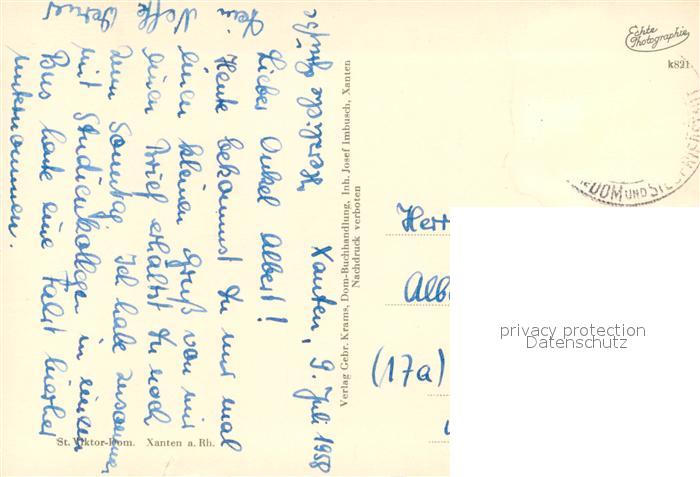 Xanten, 9. Juli 1958
Lieber Onkel Albert!
Heute bekommst du nur mal
einen kleinen Gruß von mir
einen Brief erhältst du noch
zum Sonntag. Ich habe zusammen
mit Studienkollegen in einem
Bus heute eine Fahrt hierher
unternommen.
Herzliche Grüße
Dein
Neffe
Werner
St. Viktor-Dom. Xanten a. Rh.
Verlag Gebr. Krams, Dom-Buchhandlung, Inh. Josef Imbusch, Xanten
Nachdruck verboten
Echte
Photographie
k821
DOM UND
Herr
Alb
(17a)
privacy protection
Datenschutz